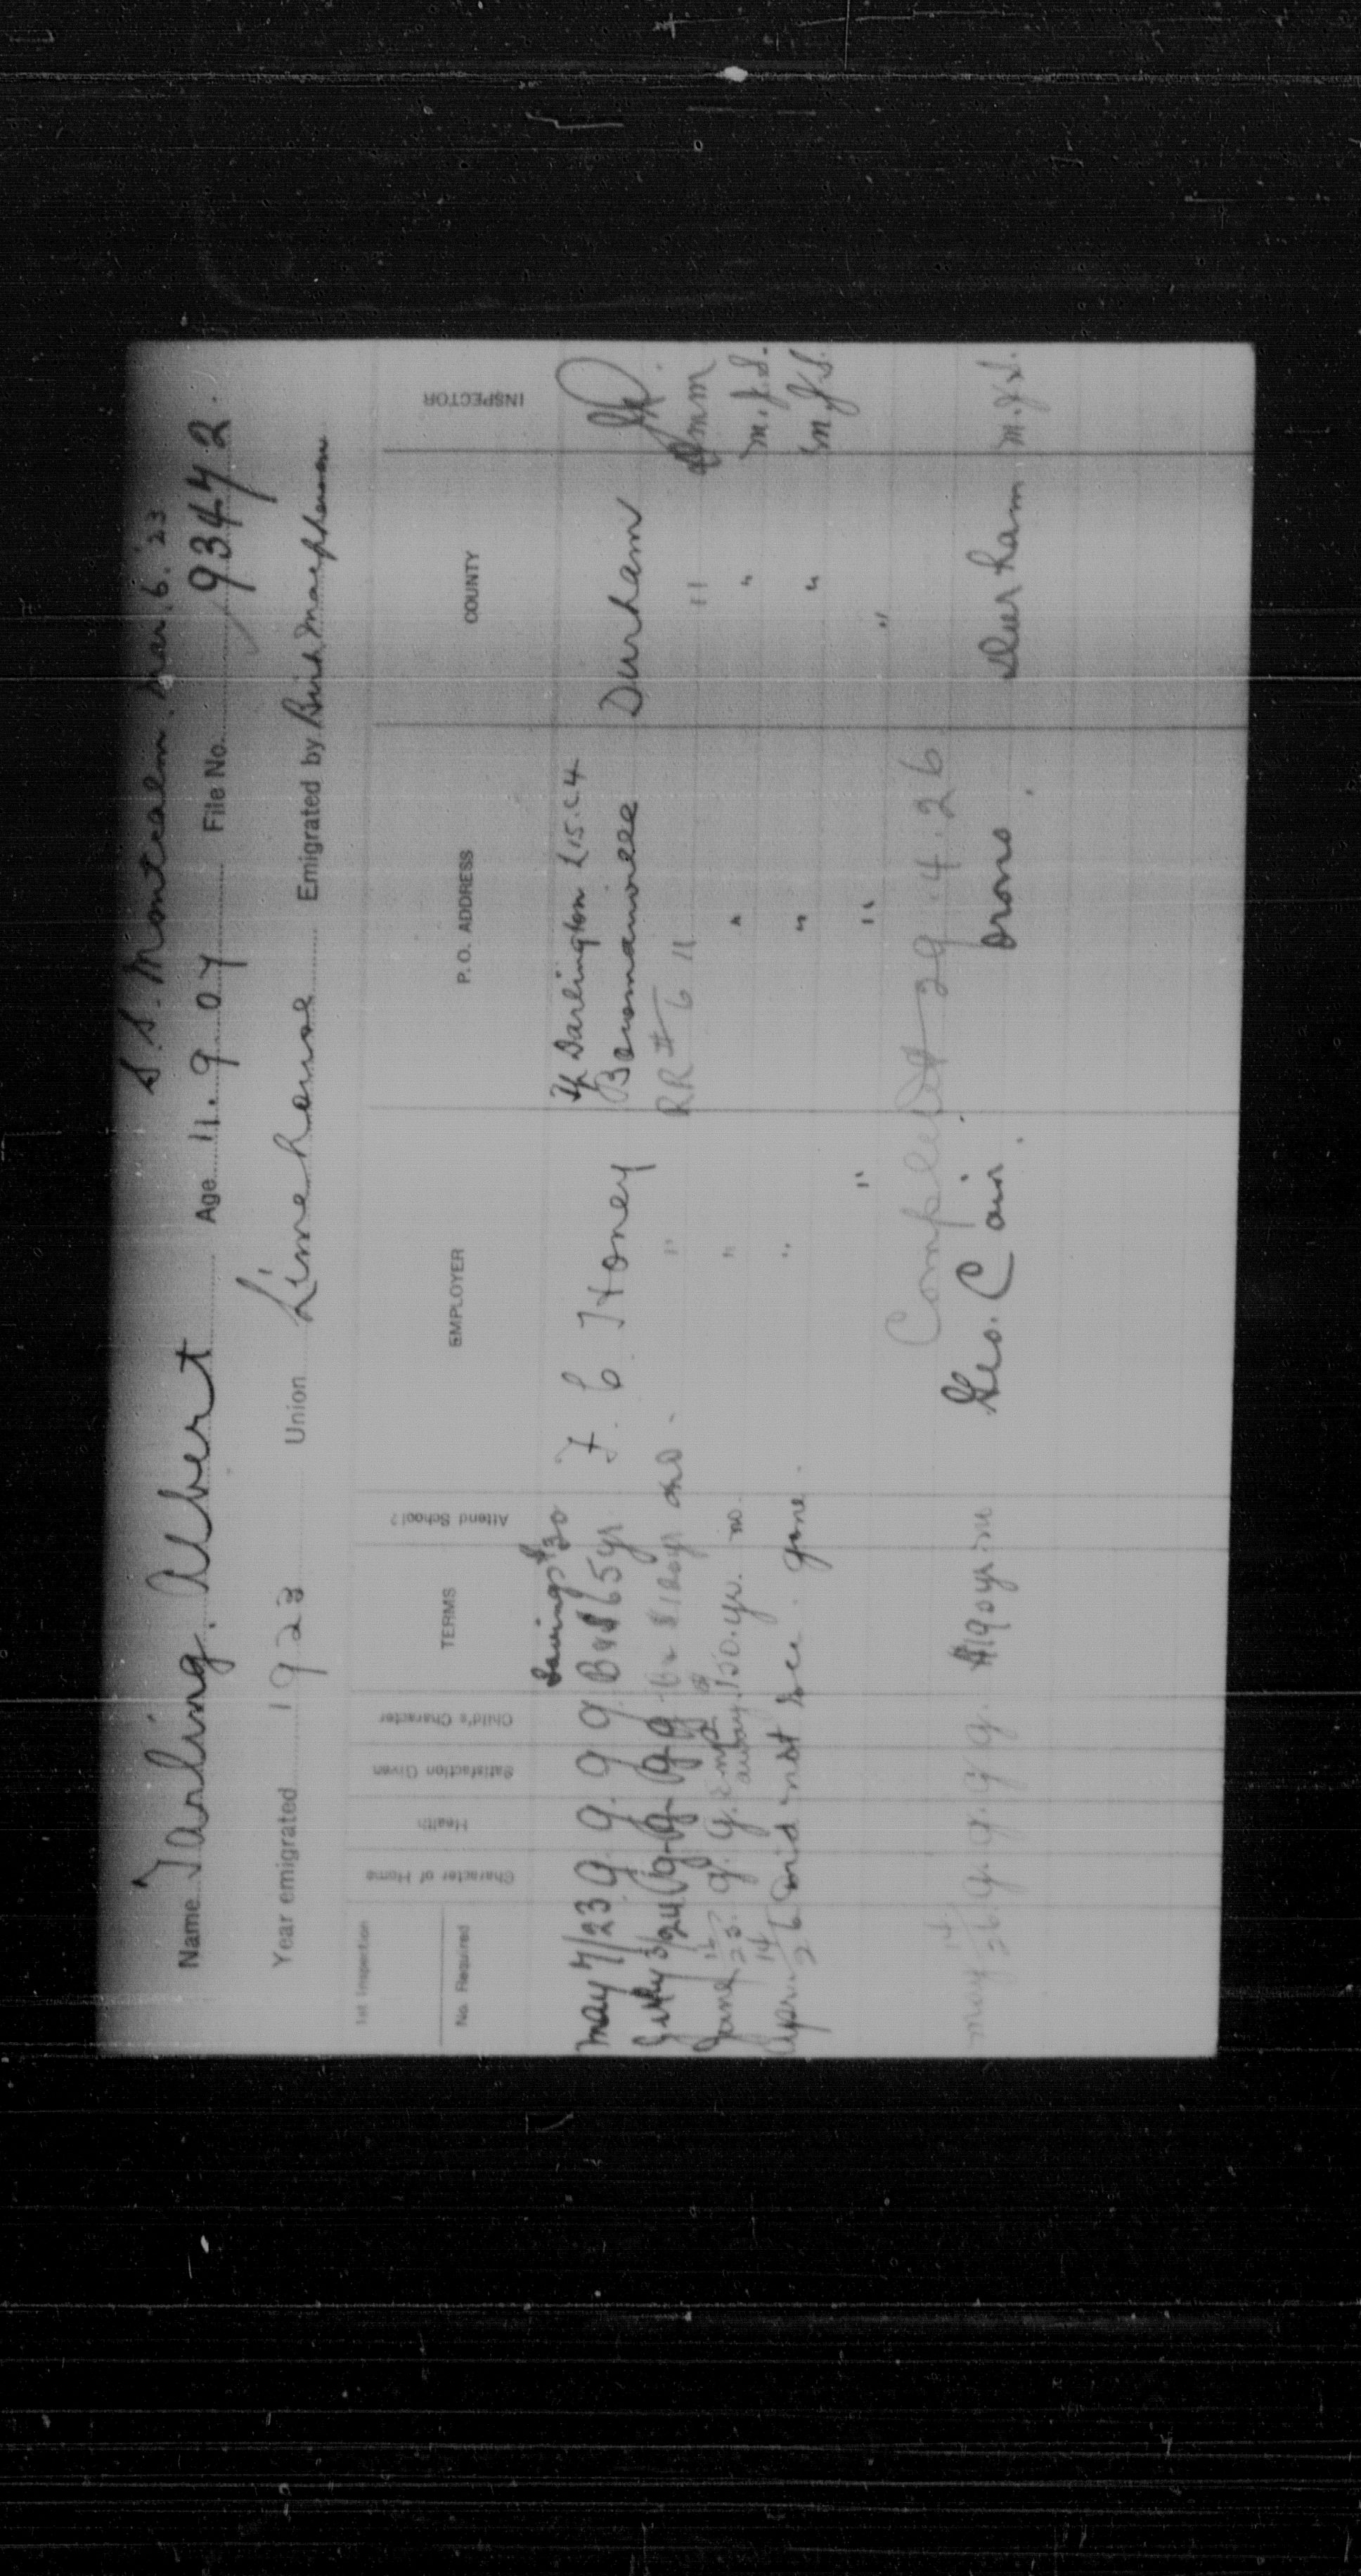 S.S. Montcalm. Mar. 6. '23
Name Tarling. Albert Age 11. 9. 07 File No. 9347 2.
Year emigrated 1923 Union Limehouse Emigrated by Birk Macpherson
1st Inspection
No. Required Character of Home Health Satisfaction Given Child's Character TERMS Attend School? EMPLOYER P. O. ADDRESS COUNTY INSPECTOR
Savings $30 Tp Darlington L 15. C. 4
May 7/23 g g. g g. $65 yr F. C. Honey Bowmanville Durham
July 3/24 g g g g $120 yr " RR # 6 11 11
June 16/25. g. g. away. 150. yr. no. " " " M.J.S.
April 14/26 did not see. gone. " " " M.J.S.
" " "
Completed 29.4.26
May 14/26. g. g. g. g. $190 yr. Geo. Cain. Orono. Durham M.J.S.